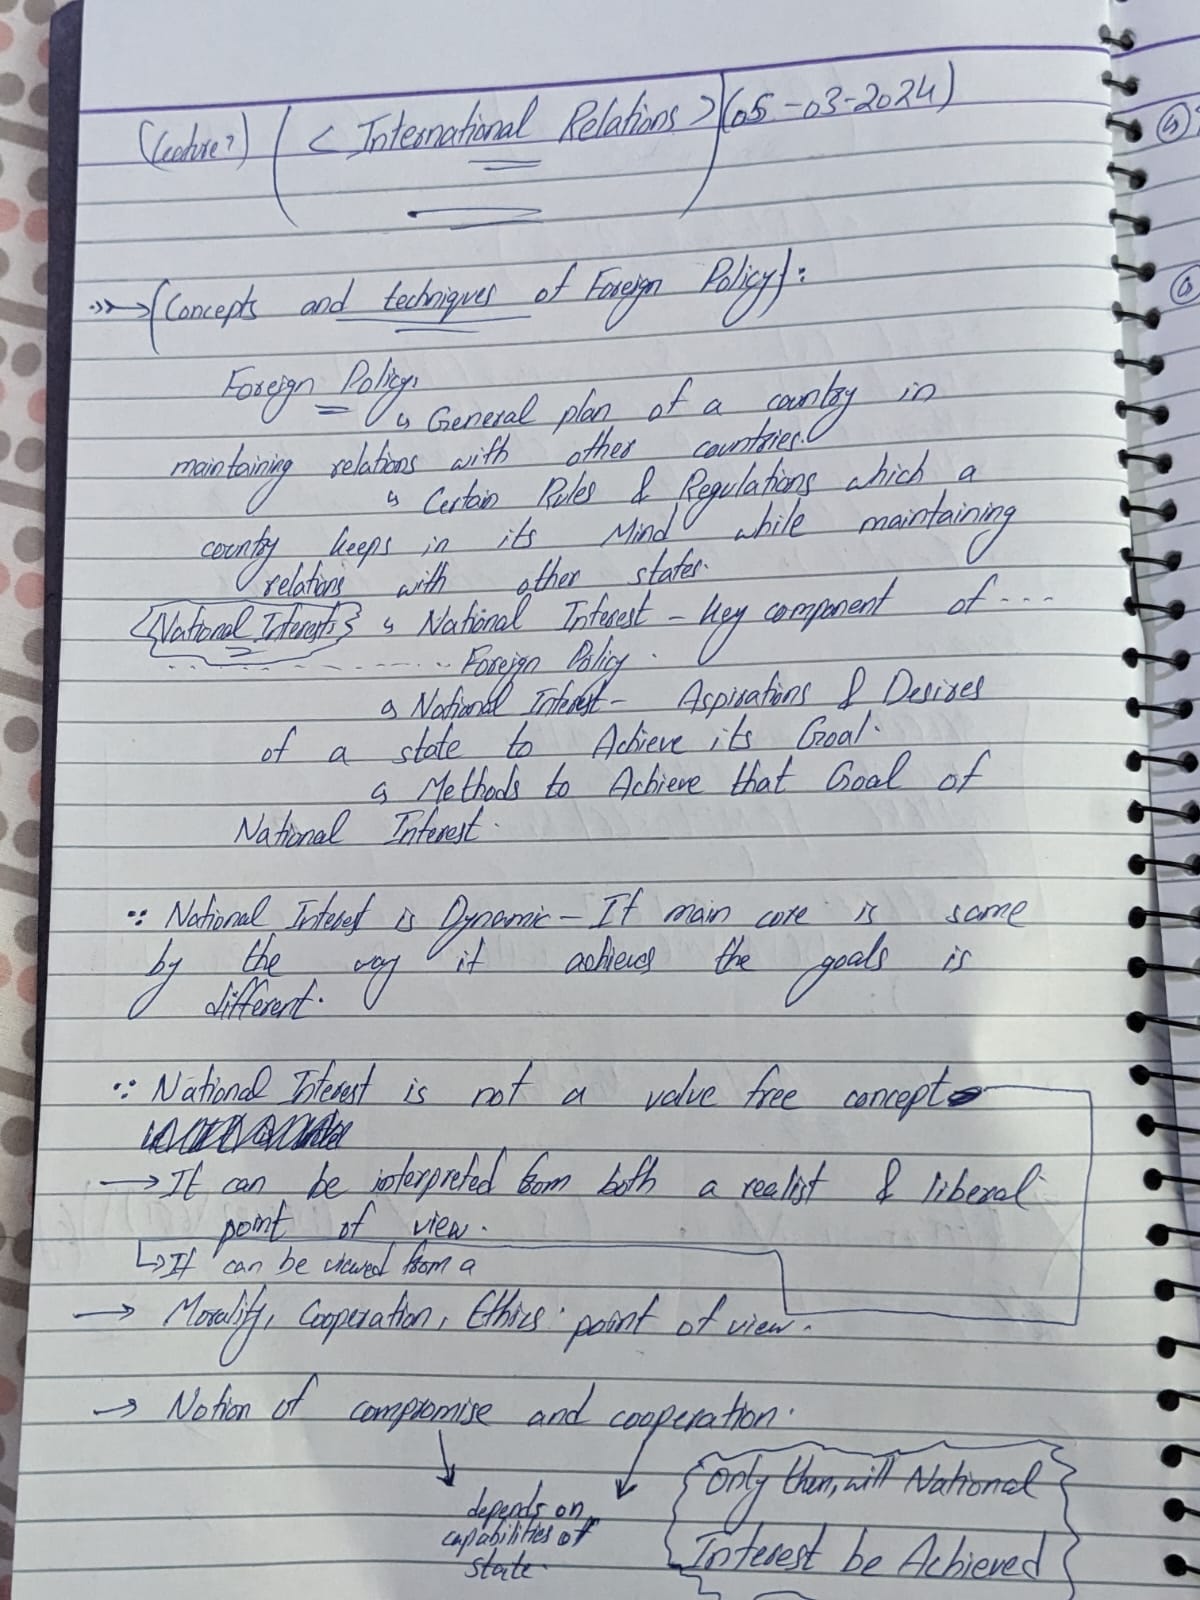 (Lecture 7) (< International Relations >) (05-03-2024)
(Concepts and techniques of Foreign Policy):
Foreign Policy,
General plan of a country in
maintaining relations with other countries.
Certain Rules & Regulations which a
country keeps in its Mind while maintaining
relations with other states.
{National Interests} National Interest - Key component of ---
Foreign Policy.
National Interest - Aspirations & Desires
of a state to Achieve its Goal.
Methods to Achieve that Goal of
National Interest.
National Interest is Dynamic - It main core is same
by the way it achieves the goals is
different.
National Interest is not a value free concept
→ It can be interpreted from both a realist & liberal
point of view.
↳ It can be viewed from a
→ Morality, Cooperation, Ethics. point of view.
→ Notion of compromise and cooperation.
depends on
capabilities of
state.
Only then, will National
Interest be Achieved